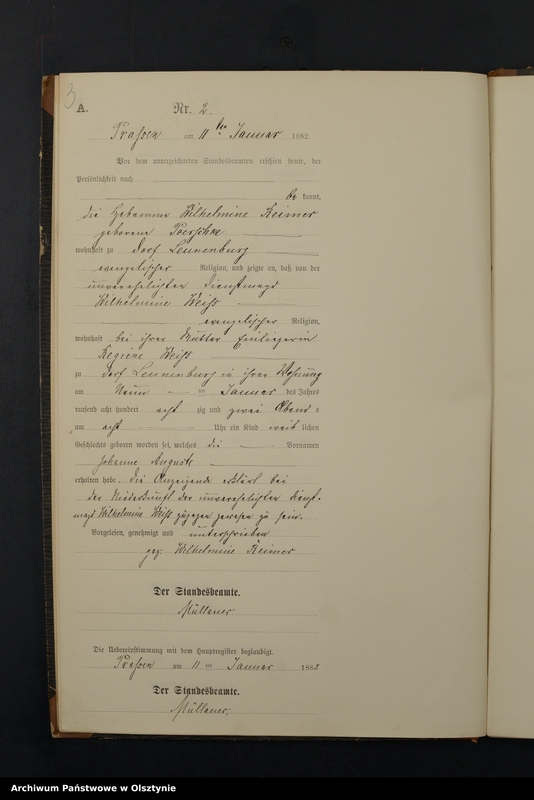 3
A.
Nr. 2.
Prassen am 11ten Januar 1882.
Vor dem unterzeichneten Standesbeamten erschien heute, der
Persönlichkeit nach
be kannt,
die Hebamme Wilhelmine Reimer
geborene
wohnhaft zu Dorf Leunenburg
evangelischer Religion, und zeigte an, daß von der
unverehelichten Dienstmagd
Wilhelmine Weiß
evangelischer Religion,
wohnhaft bei ihrer Mutter Einliegerin
Regine Weiß
zu Dorf Leunenburg in ihrer Wohnung
am Neun ten Januar des Jahres
tausend acht hundert acht zig und zwei Abends
um acht Uhr ein Kind weib lichen
Geschlechts geboren worden sei, welches die Vornamen
Johanne Auguste
erhalten habe. Die Anzeigende erklärt bei
der Niederkunft der unverehelichten Dienst-
magd Wilhelmine Weiß zugegen gewesen zu sein.
Vorgelesen, genehmigt und unterschrieben
gez. Wilhelmine Reimer
Der Standesbeamte.
Müllauer
Die Uebereinstimmung mit dem Hauptregister beglaubigt.
Prassen am 11 ten Januar 1882
Der Standesbeamte.
Müllauer.
Archiwum Państwowe w Olsztynie